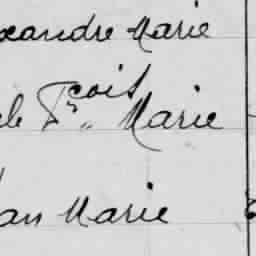 xandre Marie
le Fçois Marie
an Marie